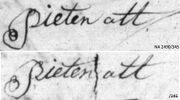 Pieter att
NA 2490/345
Pieter att
/346